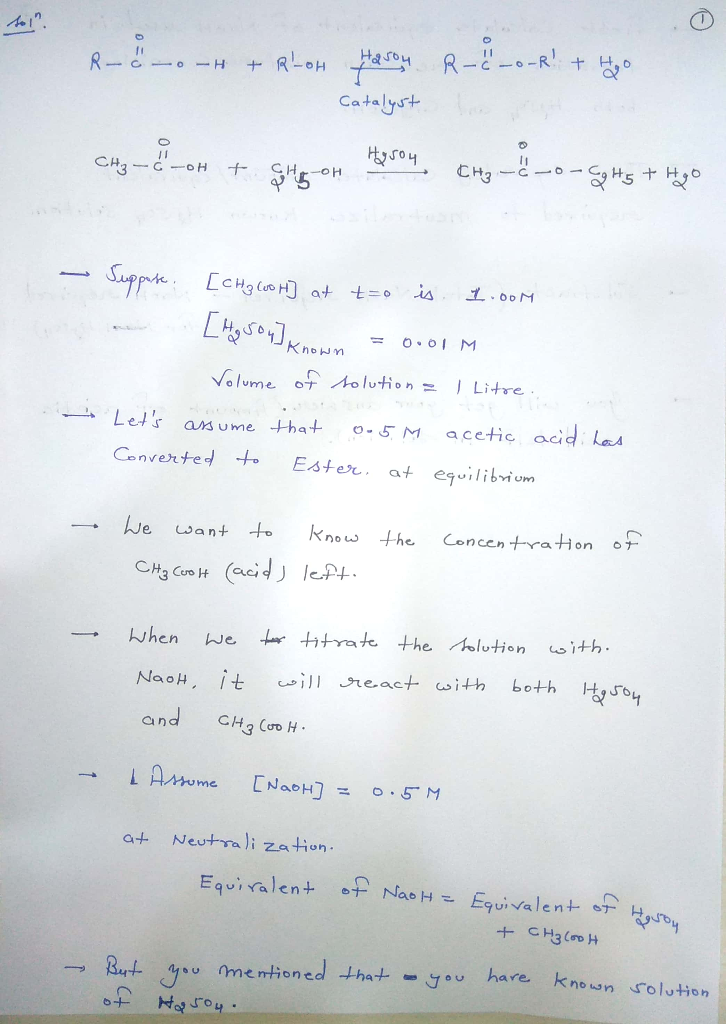 Solⁿ. ①
O O
R–C–O–H + R'–OH H2SO4 → R–C–O–R' + H2O
Catalyst
O O
CH3–C–OH + C2H5–OH H2SO4 → CH3–C–O–C2H5 + H2O
→ Suppose. [CH3COOH] at t=0 is 1.00M
[H2SO4] Known = 0.01 M
Volume of solution = 1 Litre.
→ Let's assume that 0.5 M acetic acid has
Converted to Ester. at equilibrium
→ We want to Know the Concentration of
CH3COOH (acid) left.
→ When we titrate the solution with.
NaOH, it will react with both H2SO4
and CH3COOH.
→ Assume [NaOH] = 0.5 M
at Neutralization.
Equivalent of NaOH = Equivalent of H2SO4
+ CH3COOH
→ But you mentioned that you have known solution
of H2SO4.